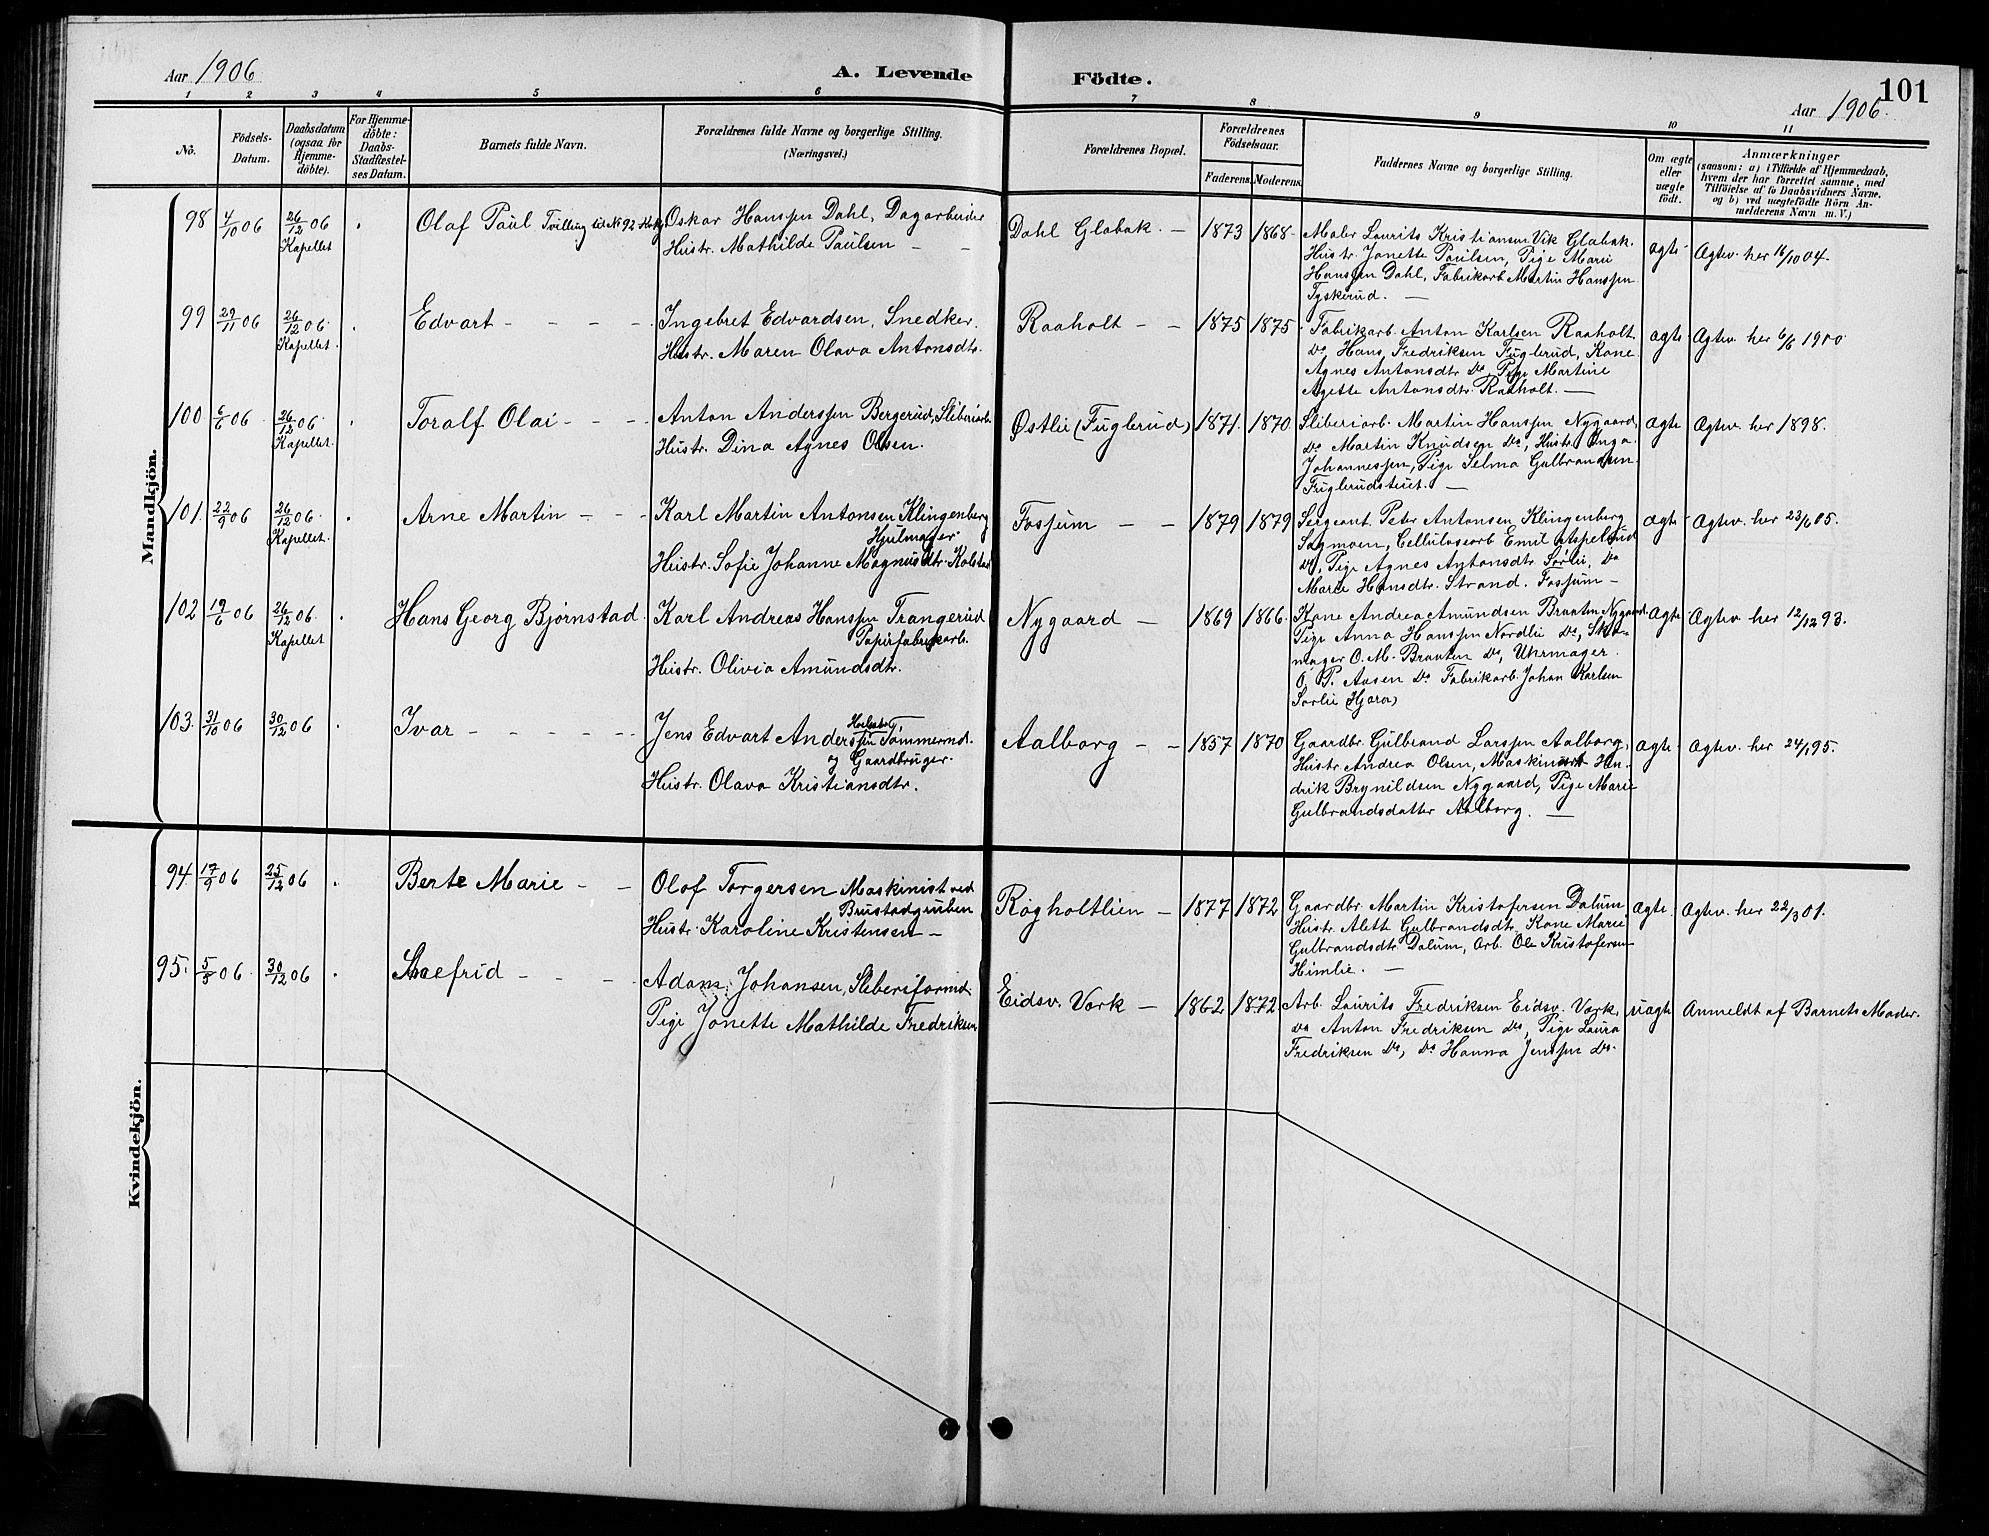 Aar 1906
A. Levende Födte.
101
Aar 1906.
1 2 3 4 5 6 7 8 9 10 11
No.
Födsels-Datum.
Daabsdatum (ogsaa for Hjemme-döbte).
For Hjemme-döbte: Daabs-Stadfæstel-ses Datum.
Barnets fulde Navn.
Forældrenes fulde Navne og borgerlige Stilling.
(Næringsvei.)
Forældrenes Bopæl.
Forældrenes Födselsaar.
Faderens. Moderens.
Faddernes Navne og borgerlige Stilling.
Om ægte eller uægte födt.
Anmærkninger
(saasom: a) i Tilfælde af Hjemmedaab,
hvem der har forrettet samme, med
Tilföielse af to Daabsvidners Navne,
og b) ved uægtefödte Börn An-
melderens Navn m. V.)
Mandkjön.
98 7/10 06 26/12 06 Kapellet Olaf Paul Tvilling til No 92
Oskar Hanssen Dahl, Dagarbeider
Hustr. Mathilde Paulsen — —
Dahl Globak. — 1873 1868
Maler Laurits Kristiansen Vik Globak.
Hustr. Jonette Paulsen, Pige Marie
Hanssen Dahl, Fabrikarb. Martin Hanssen
Tyskerud. —
ægte Ægtev. her 16/10 04.
99 29/11 06 26/12 06. Kapellet. Edvart - - - -
Ingebret Edvardsen, Snedker.
Hustr. Maren Olava Antonsdtr.
Raaholt - - 1875 1875
Fabrikarb. Anton Karlsen Raaholt,
Do Hans Fredriksen Fuglerud, Kone
Agnes Antonsdtr. Do Pige Martine
Agette Antonsdtr. Raaholt. —
ægte Ægtev. her 6/6 1900.
100 6/6 06 26/12 06. Kapellet. Toralf Olai - - -
Anton Anderssen Bergerud, Sliberiarb.
Hustr. Dina Agnes Olsen.
Østlie (Fuglerud) 1871. 1870
Sliberiarb. Martin Hanssen Nygaard,
Do Martin Knudsen Do, Hustr. Inga
Johannessen, Pige Selma Gulbrandsen
Fuglerudsteiet. —
ægte Ægtev. her 1898.
101. 22/9 06 26/12 06. Kapellet. Arne Martin - - -
Karl Martin Antonsen Klingenberg
Hjulmager.
Hustr. Sofie Johanne Magnusdtr. Kolstad
Fossum - - 1879 1879
Sergeant Peter Antonsen Klingenberg
Sagmoen, Cellulosearb. Emil Aspelund
Do, Pige Agnes Antonsdtr. Sørlie, Do
Marie Hansdtr. Strand. Fossum -
ægte Ægtev. her 23/6 05.
102 19/6 06 26/12 06. Kapellet Hans Georg Bjørnstad.
Karl Andreas Hanssen Trangerud
Papirfabrikarb.
Hustr. Olivia Amundsdtr.
Nygaard - 1869 1866.
Kone Andrea Amundsen Braaten Nygaard
Pige Anna Hanssen Nordlie Do, Sko-
mager O. M. Braaten Do, Uhrmager
O. P. Aasen Do Fabrikarb. Johan Karlsen
Sørlie (Hjera)
ægte Ægtev. her 12/12 93.
103. 31/10 06 30/12 06 Ivar - - - - -
Jens Edvart Anderssen Tømmermd.
og Gaardbruger.
Hustr. Olava Kristiansdtr.
Aalborg - - 1857 1870
Gaardbr. Gulbrand Larssen Aalborg,
Hustr. Andrea Olsen, Maskinist Hen-
drik Brynildsen Nygaard, Pige Marie
Gulbrandsdatter Aalborg. —
ægte Ægtev. her 24/1 95.
Kvindekjön.
94 17/9 06 25/12 06 Berte Marie - -
Olof Torgersen Maskinist ved
Brustadgruben
Hustr. Karoline Kristensen -
Røgholtlien - 1877 1872
Gaardbr. Martin Kristofersen Dalum,
Hustr. Alette Gulbrandsdtr. Kone Marie
Gulbrandsdtr. Dalum, Arb. Ole Kristofersen
Himlie. —
ægte Ægtev. her 22/3 01.
95. 5/8 06. 30/12 06 - - -
Adam Johansen, Sliberiformd.
Pige Jonette Mathilde Fredriksen
Eidsv. Værk - 1862 1872.
Arb. Laurits Fredriksen Eidsv. Værk,
Do Anton Fredriksen Do, Pige Laura
Fredriksen Do, Do Hanna Jenssen Do.
uægte Anmeldt af Barnets Moder.